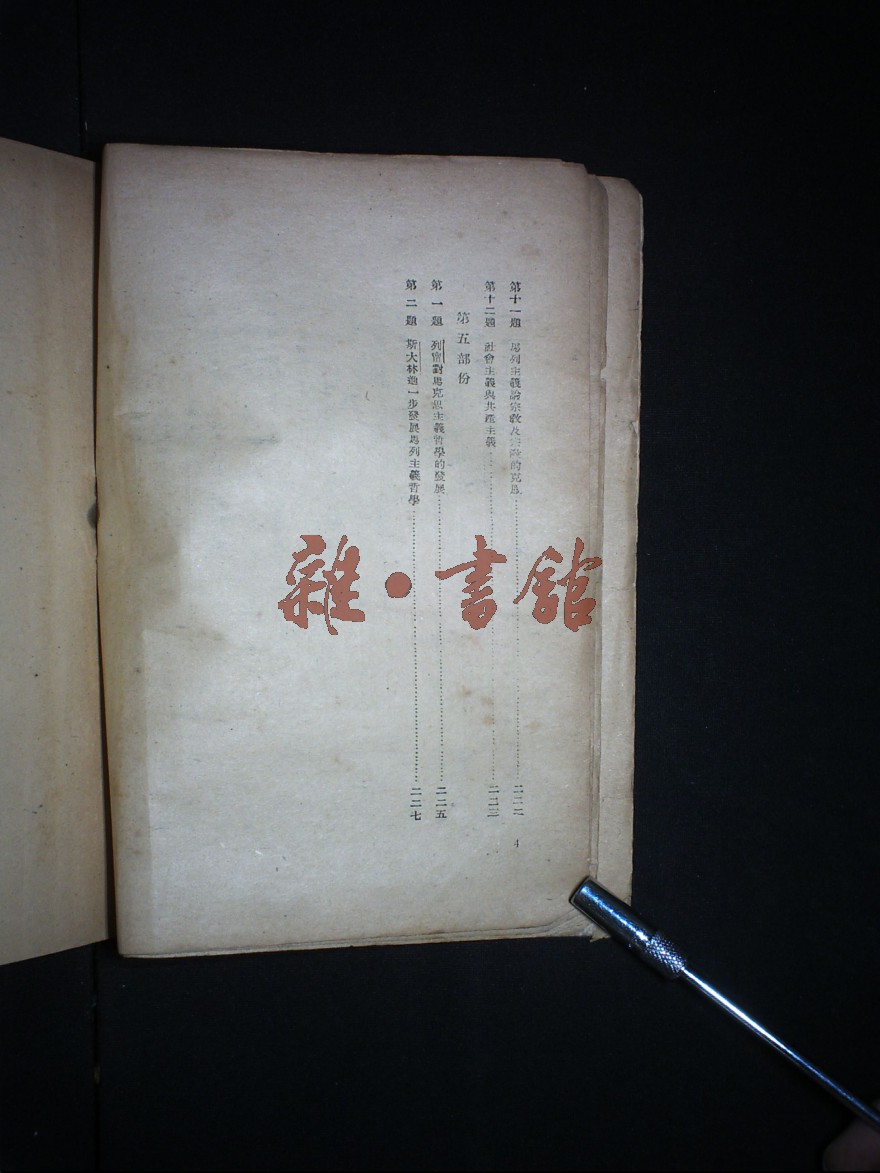 第十一題 馬列主義論宗敎及宗敎的克服……二二二
第十二題 社會主義與共產主義……二二三
第五部份
第一題 列甯對馬克思主義哲學的發展……二二五
第二題 斯大林進一步發展馬列主義哲學……二二七
4
雜·書館